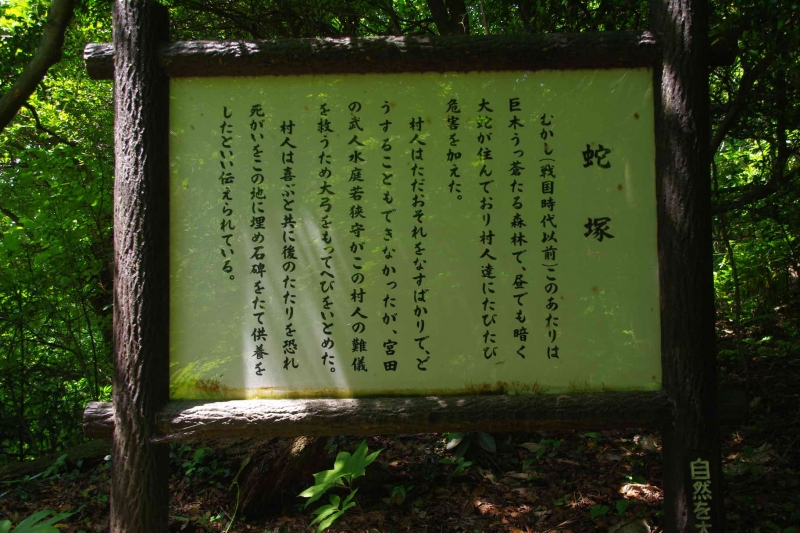 蛇塚
むかし(戦国時代以前)このあたりは
巨木うっ蒼たる森林で、昼でも暗く
大蛇が住んでおり村人達にたびたび
危害を加えた。
村人はただおそれをなすばかりで、ど
うすることもできなかったが、宮田
の武人水庭若狭守がこの村人の難儀
を救うため大弓をもってへびをいとめた。
村人は喜ぶと共に後のたたりを恐れ
死がいをこの地に埋め石碑をたて供養を
したといい伝えられている。
自然を大